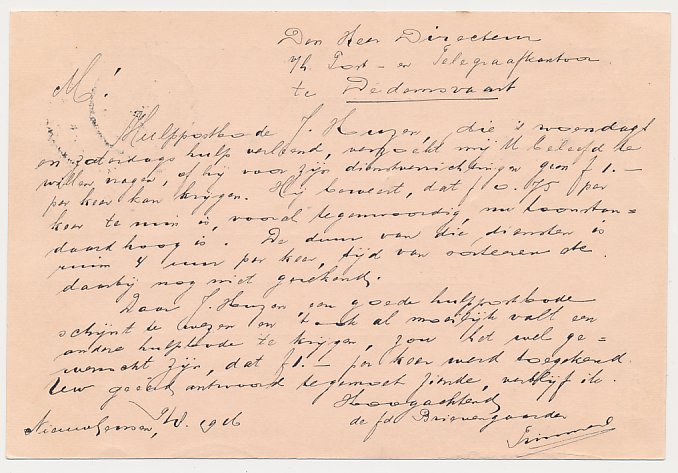 Den Heer Directeur
v/h Post- en Telegraafkantoor
te Dedemsvaart
M!
Hulppostbode J. Huzen, die 's woensdags
en zaterdags hulp verleend, verzocht mij U beleefd te
willen vragen, of hij voor zijn dienstverrichtingen geen f 1.–
per keer kan krijgen. Hij beweert, dat f 0.75 per
keer te min is, vooral tegenwoordig, nu loonstan=
daard hoog is. De duur van die diensten is
ruim 4 uur per keer, tijd van sorteeren etc.
daarbij nog niet gerekend.
Daar J. Huzen een goede hulppostbode
schijnt te wezen en 't ook al moeilijk valt een
andere hulpbode te krijgen, zou het wel ge=
wenscht zijn, dat f 1.– per keer werd toegekend.
Uw geëerd antwoord tegemoet ziende, verblijf ik.
Hoogachtend
de fd Brievengaarder
Nieuwleusen, 1916